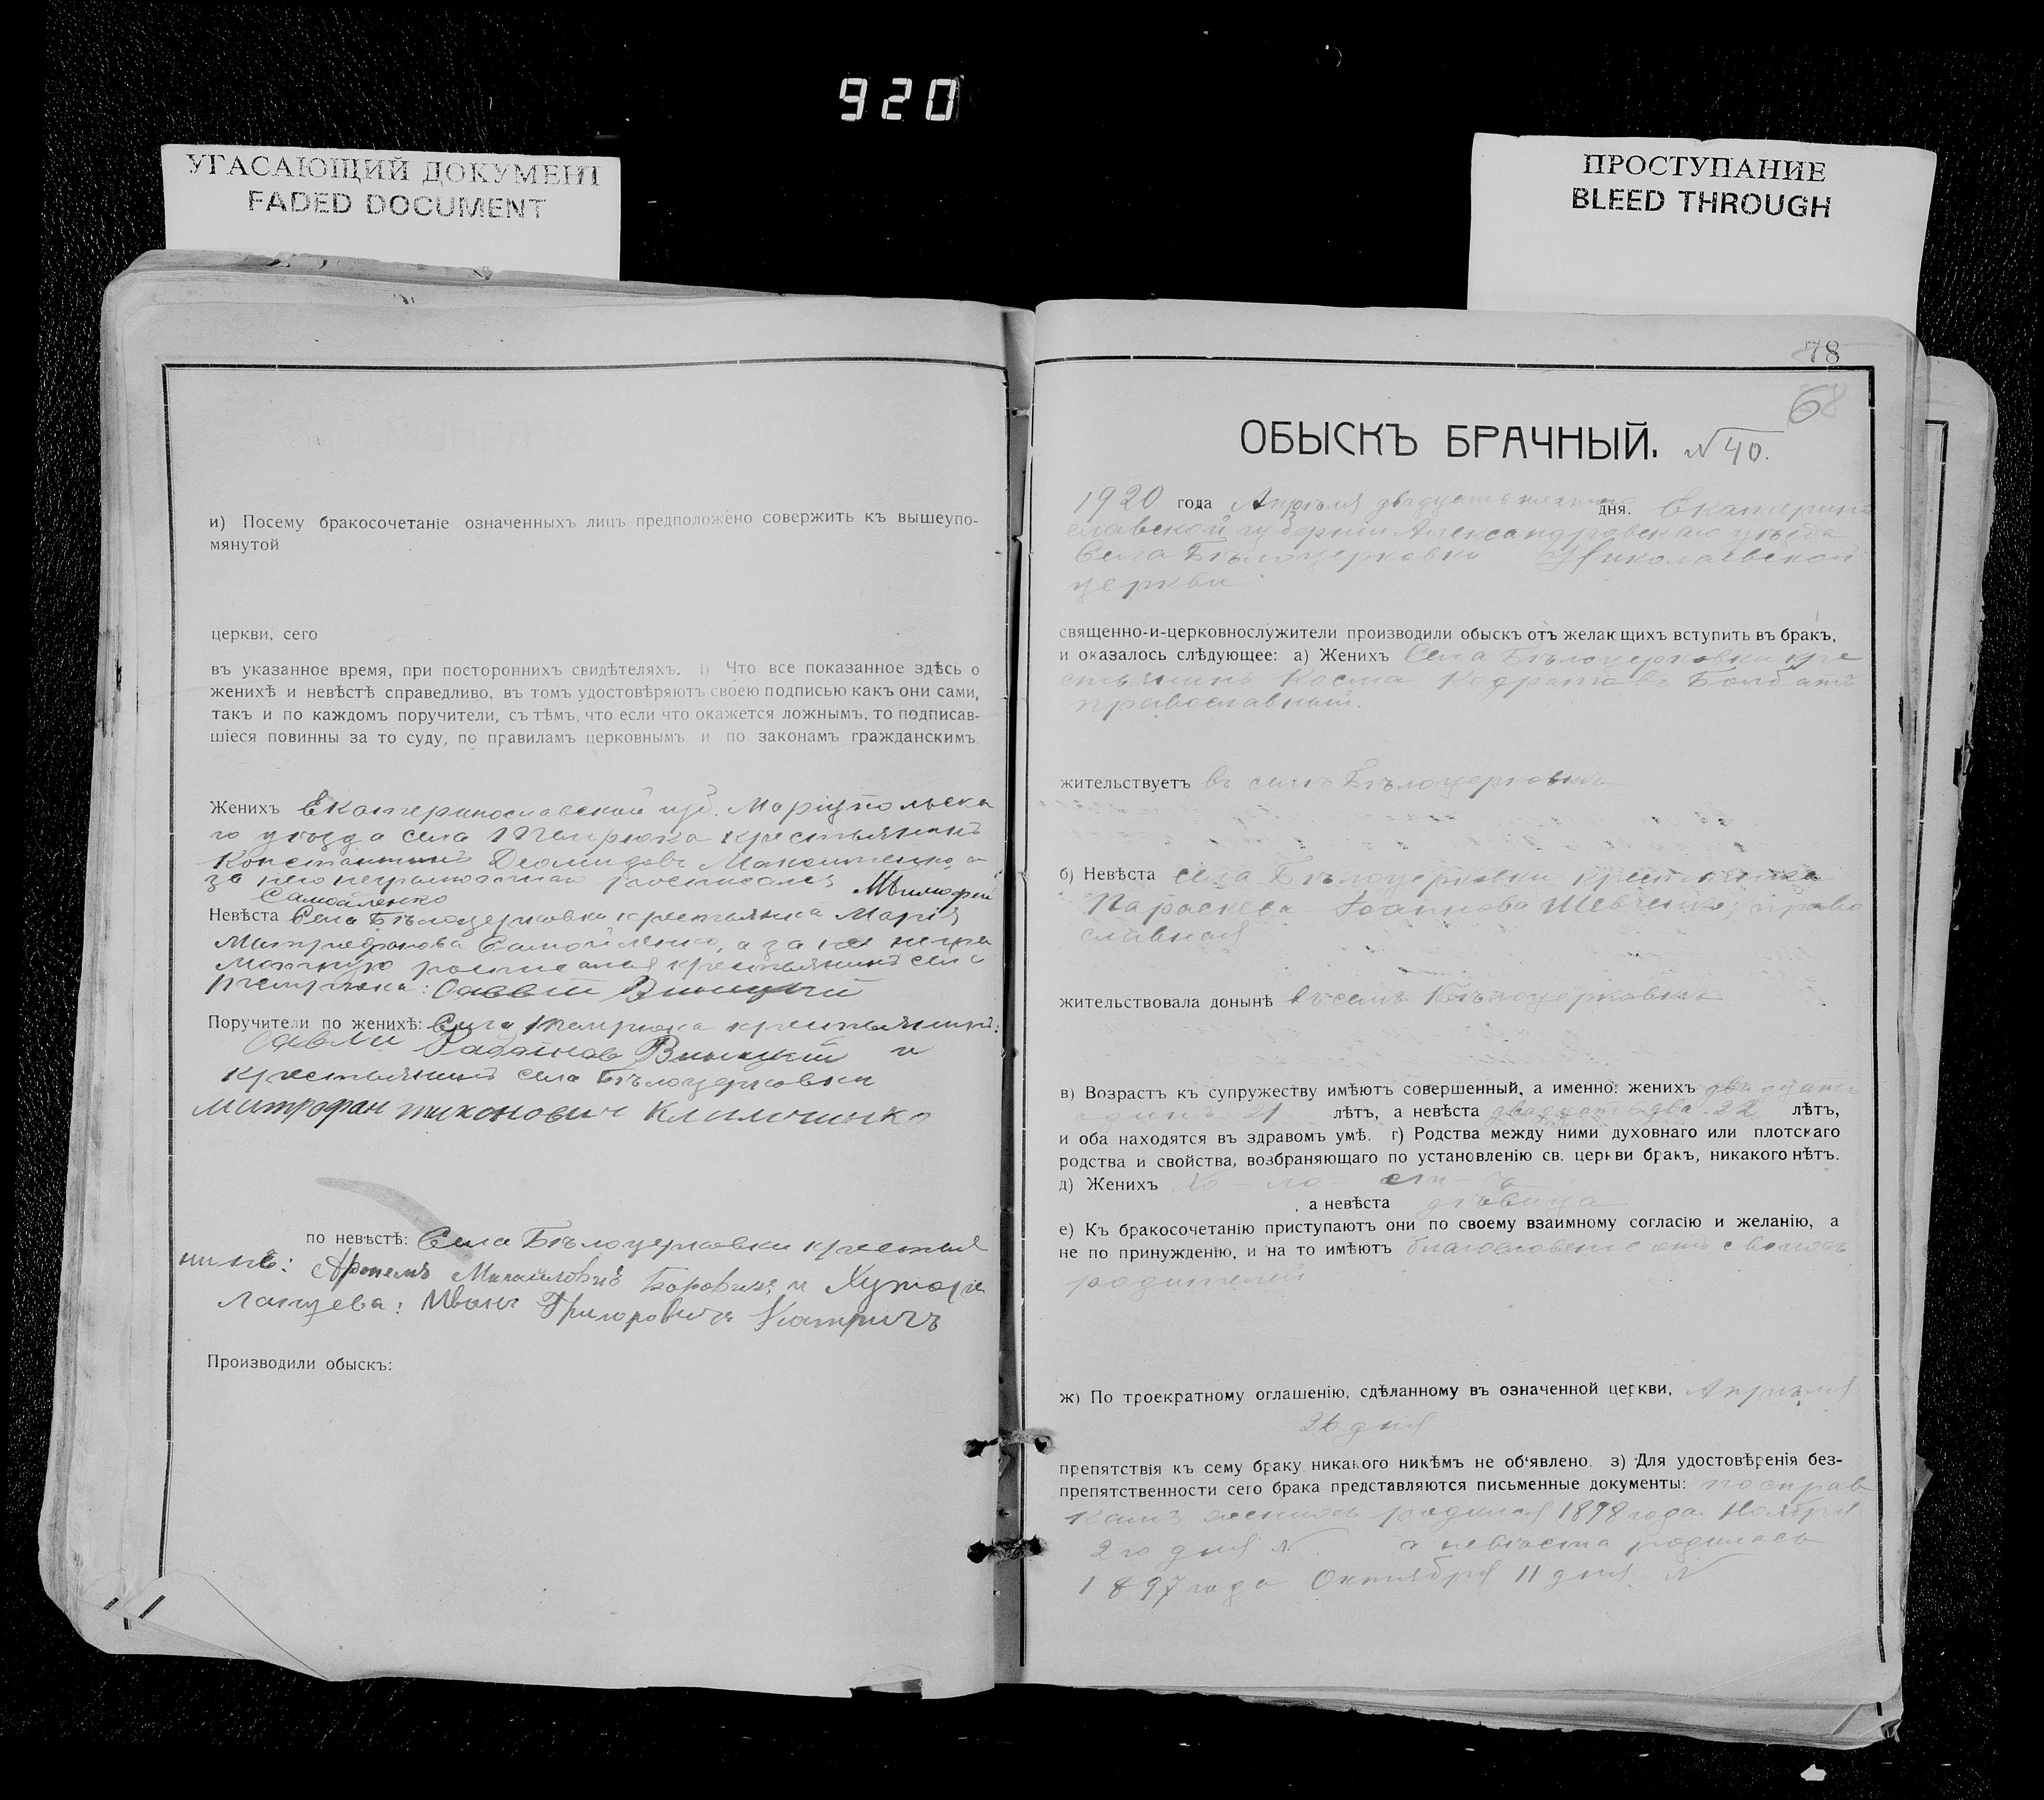 920
УГАСАЮЩИЙ ДОКУМЕНТ
FADED DOCUMENT
ПРОСТУПАНИЕ
BLEED THROUGH
и) Посему бракосочетаніе означенныхъ лицъ предположено совержить къ вышеупо-
мянутой
церкви, сего
въ указанное время, при постороннихъ свидѣтеляхъ. і) Что все показанное здѣсь о
женихѣ и невѣстѣ справедливо, въ томъ удостовѣряютъ своею подписью какъ они сами,
такъ и по каждомъ поручители, съ тѣмъ, что если что окажется ложнымъ, то подписав-
шіеся повинны за то суду, по правиламъ церковнымъ и по законамъ гражданскимъ
Женихъ Екатеринославской губ. Маріупольска
го уѣзда села Темрюка крестьянинъ
Константинъ Діомидовъ
за него неграмотнаго росписался
Самойленко
Невѣста Села Бѣлоцерковки крестьянка Марія
Митрофанова Самойленко, а за нее негра
мотную росписался крестьянинъ села
Темрюка: Савви
Поручители по женихѣ: Села Темрюка крестьянинъ:
и
крестьянинъ села Бѣлоцерковки
Митрофан тихонович
по невѣстѣ: Села Бѣлоцерковки крестья
нинъ: Артемъ Михайловичъ и Хутора
Иванъ Григоровичъ Катричъ
Производили обыскъ:
78
68
ОБЫСКЪ БРАЧНЫЙ. № 40.
1920 года Апрѣля двадцать дня. Екатерино
славской губерніи Александровскаго уѣзда
Села Бѣлоцерковки Николаевской
церкви
священно-и-церковнослужители производили обыскъ отъ желающихъ вступить въ бракъ,
и оказалось слѣдующее: а) Женихъ Села Бѣлоцерковки кре
стьянинъ Косма Кодратовъ
православный.
жительствуетъ въ селѣ Бѣлоцерковкѣ
б) Невѣста села Бѣлоцерковки крестьянка
Параскева Іоаннова Шевченко, право
славная
жительствовала донынѣ въ селѣ Бѣлоцерковкѣ
в) Возрастъ къ супружеству имѣютъ совершенный, а именно: женихъ двадцать
одинъ 21 лѣтъ, а невѣста двадцать два 22 лѣтъ,
и оба находятся въ здравомъ умѣ. г) Родства между ними духовнаго или плотскаго
родства и свойства, возбраняющаго по установленію св. церкви бракъ, никакого нѣтъ.
д) Женихъ Хо-ло-ст-ъ
, а невѣста дѣвица
е) Къ бракосочетанію приступаютъ они по своему взаимному согласію и желанію, а
не по принужденію, и на то имѣютъ благословеніе отъ своихъ
родителей
ж) По троекратному оглашенію, сдѣланному въ означенной церкви, Апрѣля
26 дня
препятствія къ сему браку никакого никѣмъ не об'явлено. з) Для удостовѣренія без-
препятственности сего брака представляются письменные документы: по справ
камъ женихъ родился 1898 года Ноября
2 го дня № а невѣста родилась
1897 года Октября 11 дня №